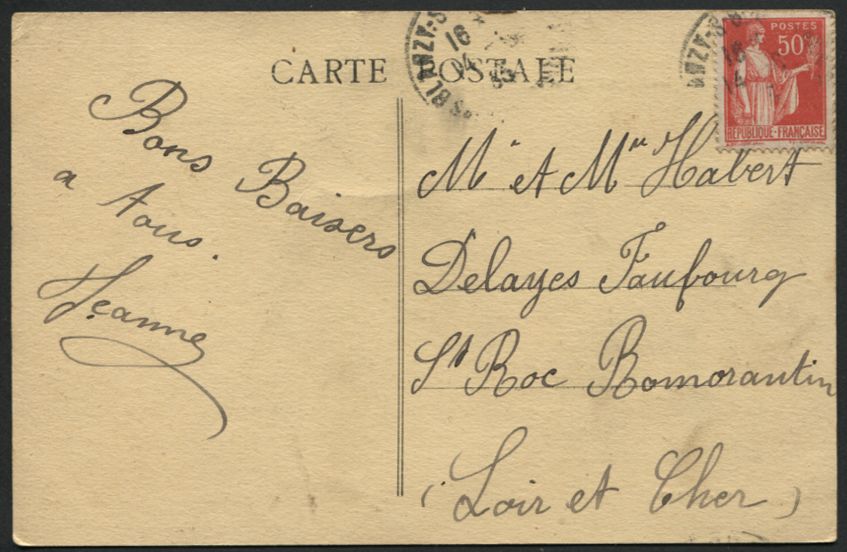 CARTE POSTALE
POSTES
50
REPUBLIQUE-FRANÇAISE
Bons Baisers
a tous.
Jeanne
Mr et Mme Habert
Delayes Faubourg
St Roc Romorantin
(Loir et Cher)